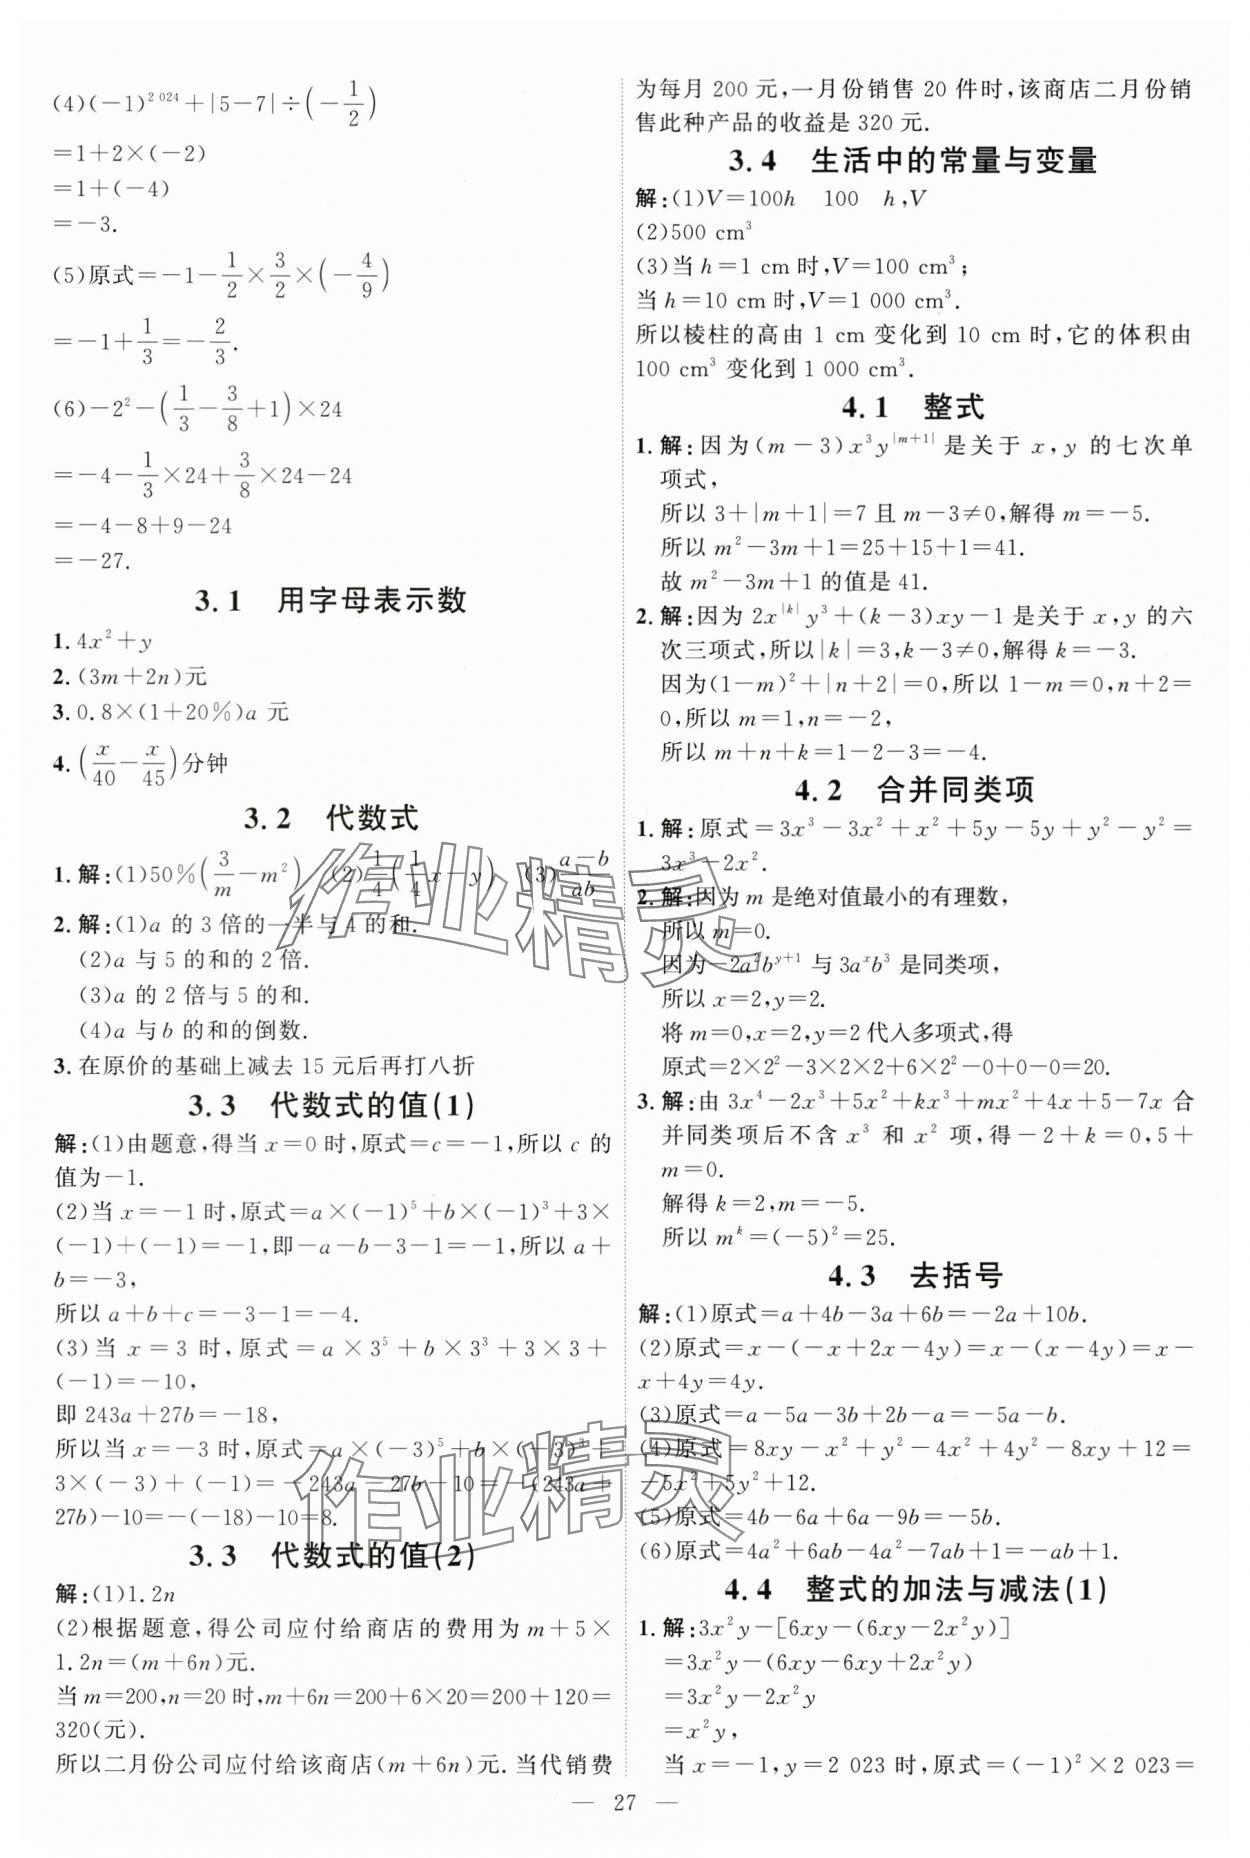 (4)(-1)^{2 024}+|5-7|÷(-1/2)
=1+2×(-2)
=1+(-4)
=-3.
(5)原式=-1-1/2×3/2×(-4/9)
=-1+1/3=-2/3.
(6)-2²-(1/3-3/8+1)×24
=-4-1/3×24+3/8×24-24
=-4-8+9-24
=-27.
3.1 用字母表示数
1. 4x²+y
2. (3m+2n)元
3. 0.8×(1+20%)a 元
4. (x/40-x/45)分钟
3.2 代数式
1. 解:(1)50%(3/m-m²) (2)1/4(1/4x-y) (3)(a-b)/ab
2. 解:(1)a 的 3 倍的一半与 4 的和.
(2)a 与 5 的和的 2 倍.
(3)a 的 2 倍与 5 的和.
(4)a 与 b 的和的倒数.
3. 在原价的基础上减去 15 元后再打八折
3.3 代数式的值(1)
解:(1)由题意,得当 x=0 时,原式=c=-1,所以 c 的
值为-1.
(2)当 x=-1 时,原式=a×(-1)⁵+b×(-1)³+3×
(-1)+(-1)=-1,即-a-b-3-1=-1,所以 a+
b=-3,
所以 a+b+c=-3-1=-4.
(3)当 x=3 时,原式=a×3⁵+b×3³+3×3+
(-1)=-10,
即 243a+27b=-18,
所以当 x=-3 时,原式=a×(-3)⁵+b×(-3)³+
3×(-3)+(-1)=-243a-27b-10=-(243a+
27b)-10=-(-18)-10=8.
3.3 代数式的值(2)
解:(1)1.2n
(2)根据题意,得公司应付给商店的费用为 m+5×
1.2n=(m+6n)元.
当 m=200,n=20 时,m+6n=200+6×20=200+120=
320(元).
所以二月份公司应付给该商店(m+6n)元.当代销费
为每月 200 元,一月份销售 20 件时,该商店二月份销
售此种产品的收益是 320 元.
3.4 生活中的常量与变量
解:(1)V=100h 100 h,V
(2)500 cm³
(3)当 h=1 cm 时,V=100 cm³;
当 h=10 cm 时,V=1 000 cm³.
所以棱柱的高由 1 cm 变化到 10 cm 时,它的体积由
100 cm³ 变化到 1 000 cm³.
4.1 整式
1. 解:因为(m-3)x³y^{|m+1|}是关于 x,y 的七次单
项式,
所以 3+|m+1|=7 且 m-3≠0,解得 m=-5.
所以 m²-3m+1=25+15+1=41.
故 m²-3m+1 的值是 41.
2. 解:因为 2x^{|k|}y³+(k-3)xy-1 是关于 x,y 的六
次三项式,所以|k|=3,k-3≠0,解得 k=-3.
因为(1-m)²+|n+2|=0,所以 1-m=0,n+2=
0,所以 m=1,n=-2,
所以 m+n+k=1-2-3=-4.
4.2 合并同类项
1. 解:原式=3x³-3x²+x²+5y-5y+y²-y²=
3x³-2x².
2. 解:因为 m 是绝对值最小的有理数,
所以 m=0.
因为-2a²b^{y+1} 与 3a^{x}b³ 是同类项,
所以 x=2,y=2.
将 m=0,x=2,y=2 代入多项式,得
原式=2×2²-3×2×2+6×2²-0+0-0=20.
3. 解:由 3x⁴-2x³+5x²+kx³+mx²+4x+5-7x 合
并同类项后不含 x³ 和 x² 项,得-2+k=0,5+
m=0.
解得 k=2,m=-5.
所以 m^{k}=(-5)²=25.
4.3 去括号
解:(1)原式=a+4b-3a+6b=-2a+10b.
(2)原式=x-(-x+2x-4y)=x-(x-4y)=x-
x+4y=4y.
(3)原式=a-5a-3b+2b-a=-5a-b.
(4)原式=8xy-x²+y²-4x²+4y²-8xy+12=
-5x²+5y²+12.
(5)原式=4b-6a+6a-9b=-5b.
(6)原式=4a²+6ab-4a²-7ab+1=-ab+1.
4.4 整式的加法与减法(1)
1. 解:3x²y-[6xy-(6xy-2x²y)]
=3x²y-(6xy-6xy+2x²y)
=3x²y-2x²y
=x²y,
当 x=-1,y=2 023 时,原式=(-1)²×2 023=
— 27 —
作业精灵
作业精灵